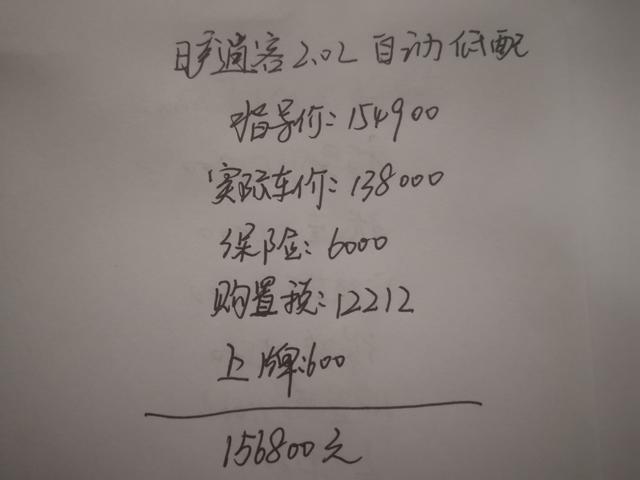 日产逍客2.0L 自动低配
指导价:154900
实际车价:138000
保险:6000
购置税:12212
上牌:600
156800元